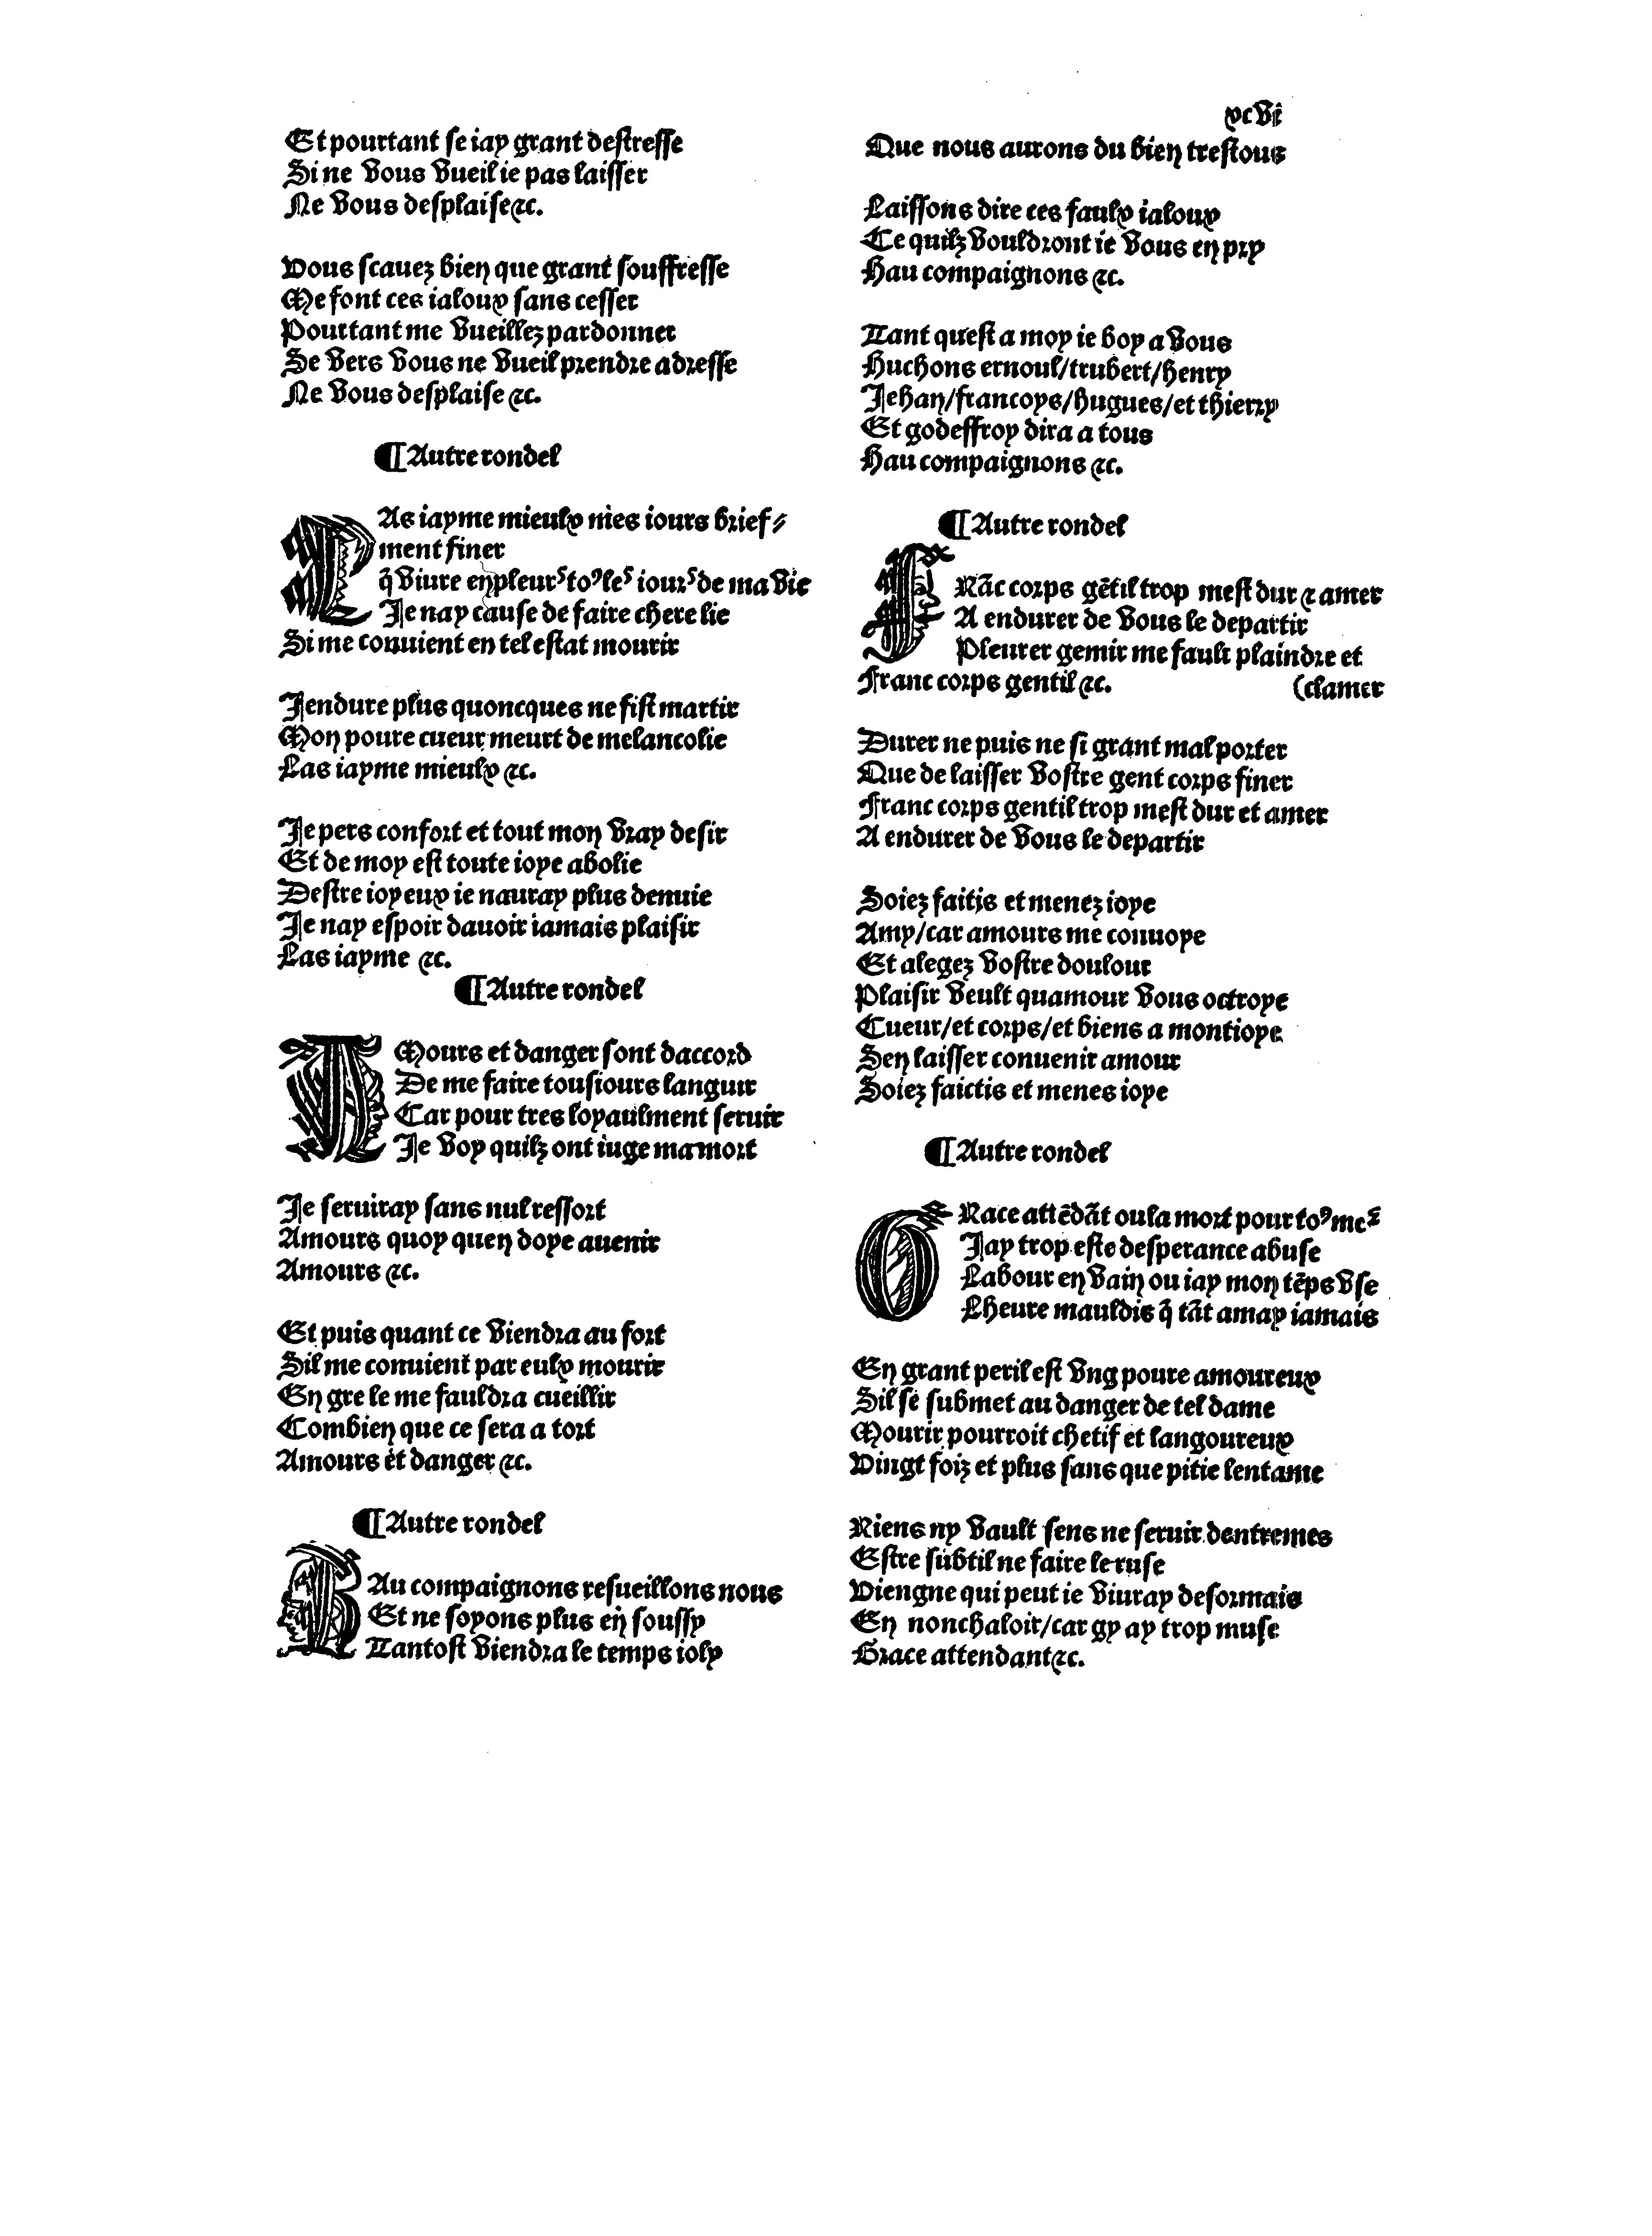 xcvi
Et pourtant se iay grant destresse
Si ne vous vueil ie pas laisser
Ne vous desplaise ⁊c.
Vous scauez bien que grant souffresse
Me font ces ialoux sans cesser
Pourtant me vueillez pardonner
Se vers vous ne vueil prendre adresse
Ne vous desplaise ⁊c.
¶ Autre rondel
LAs iayme mieulx mes iours brief⸗
ment finer
q̄ viure en pleurˢ toꝰ leˢ iourˢ de ma vie
Je nay cause de faire chere lie
Si me conuient en tel estat mourir
Jendure plus quoncques ne fist martir
Mon poure cueur meurt de melancolie
Las iayme mieulx ⁊c.
Je pers confort et tout mon vray desir
Et de moy est toute ioye abolie
Destre ioyeux ie nauray plus denuie
Je nay espoir dauoir iamais plaisir
Las iayme ⁊c.
¶ Autre rondel
AMours et danger sont daccord
De me faire tousiours languir
Car pour tres loyaulment seruir
Je voy quilz ont iuge ma mort
Je seruiray sans nul ressort
Amours quoy quen doye auenir
Amours ⁊c.
Et puis quant ce viendra au fort
Sil me conuient par eulx mourir
En gre le me fauldra cueillir
Combien que ce sera a tort
Amours et danger ⁊c.
¶ Autre rondel
HAu compaignons resueillons nous
Et ne soyons plus en soussy
Tantost viendra le temps ioly
Que nous aurons du bien trestous
Laissons dire ces faulx ialoux
Ce quilz vouldront ie vous en pry
Hau compaignons ⁊c.
Tant quest a moy ie boy a vous
Huchons ernoul/trubert/henry
Jehan/francoys/hugues/et thierry
Et godeffroy dira a tous
Hau compaignons ⁊c.
¶ Autre rondel
FRāc corps gētil trop mest dur ⁊ amer
A endurer de vous le departir
Pleurer gemir me fault plaindre et
Franc corps gentil ⁊c. (clamer
Durer ne puis ne si grant mal porter
Que de laisser vostre gent corps finer
Franc corps gentil trop mest dur et amer
A endurer de vous le departir
Soiez faitis et menez ioye
Amy/car amours me conuoye
Et alegez vostre doulour
Plaisir veult quamour vous octroye
Cueur/et corps/et biens a montioye
Sen laisser conuenir amour
Soiez faictis et menes ioye
¶ Autre rondel
GRace attēdāt ou la mort pour toꝰ mes
Jay trop este desperance abuse
Labour en vain ou iay mon tēps vse
Lheure mauldis q̄ tāt amay iamais
En grant peril est vng poure amoureux
Sil se submet au danger de tel dame
Mourir pourroit chetif et langoureux
Vingt foiz et plus sans que pitie lentame
Riens ny vault sens ne seruir dentremes
Estre subtil ne faire le ruse
Viengne qui peut ie viuray desormais
En nonchaloir/car gy ay trop muse
Grace attendant ⁊c.